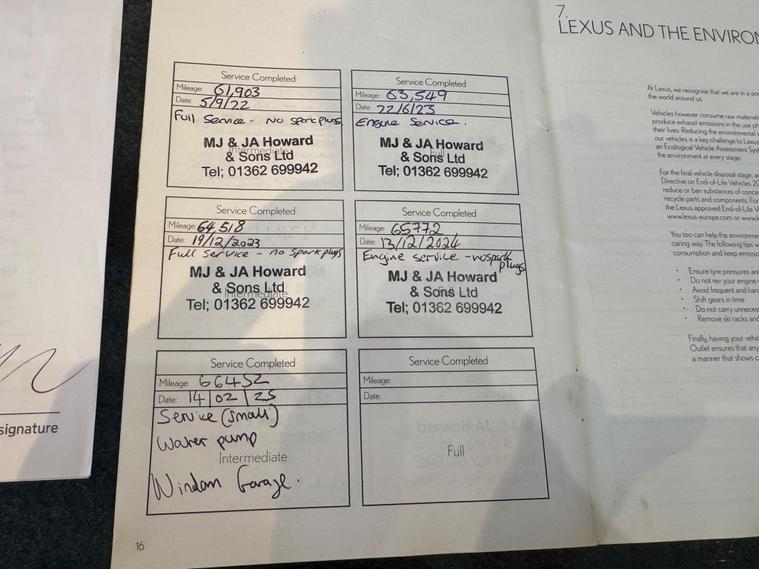 Service Completed
Mileage: 61,903
Date: 5/9/22
Full Service - no spark plugs
Intermediate
MJ & JA Howard
& Sons Ltd
Tel; 01362 699942
Service Completed
Mileage: 63,549
Date: 22/6/23
Engine Service.
Full
MJ & JA Howard
& Sons Ltd
Tel; 01362 699942
Service Completed
Mileage: 64518
Date: 19/12/2023
Full Service - no Spark plugs
Intermediate
MJ & JA Howard
& Sons Ltd
Tel; 01362 699942
Service Completed
Mileage: 65772
Date: 13/12/2024
Engine service - no spark
plugs
Full
MJ & JA Howard
& Sons Ltd
Tel; 01362 699942
Service Completed
Mileage: 66452
Date: 14/02/25
Service (small)
Water pump
Intermediate
Windam Garage.
Service Completed
Mileage:
Date:
Full
16
signature
7.
LEXUS AND THE ENVIRON
At Lexus, we recognise that we are in a
the world around us.
Vehicles however consume raw materia
produce exhaust emissions in the use
their lives. Reducing the environmental
our vehicles is a key challenge to Lexus
an Ecological Vehicle Assessment Sys
the environment at every stage.
For the final vehicle disposal stage, a
Directive on End-of-Life Vehicles 20
reduce or ban substances of conce
recycle parts and components. For
the Lexus approved End-of-Life V
www.lexus-europe.com or www.l
You too can help the environme
caring way. The following tips w
consumption and keep emissio
• Ensure tyre pressures are
• Do not rev your engine
• Avoid frequent and har
• Shift gears in time
• Do not carry unneces
• Remove ski racks and
Finally, having your vehic
Outlet ensures that any
a manner that shows c